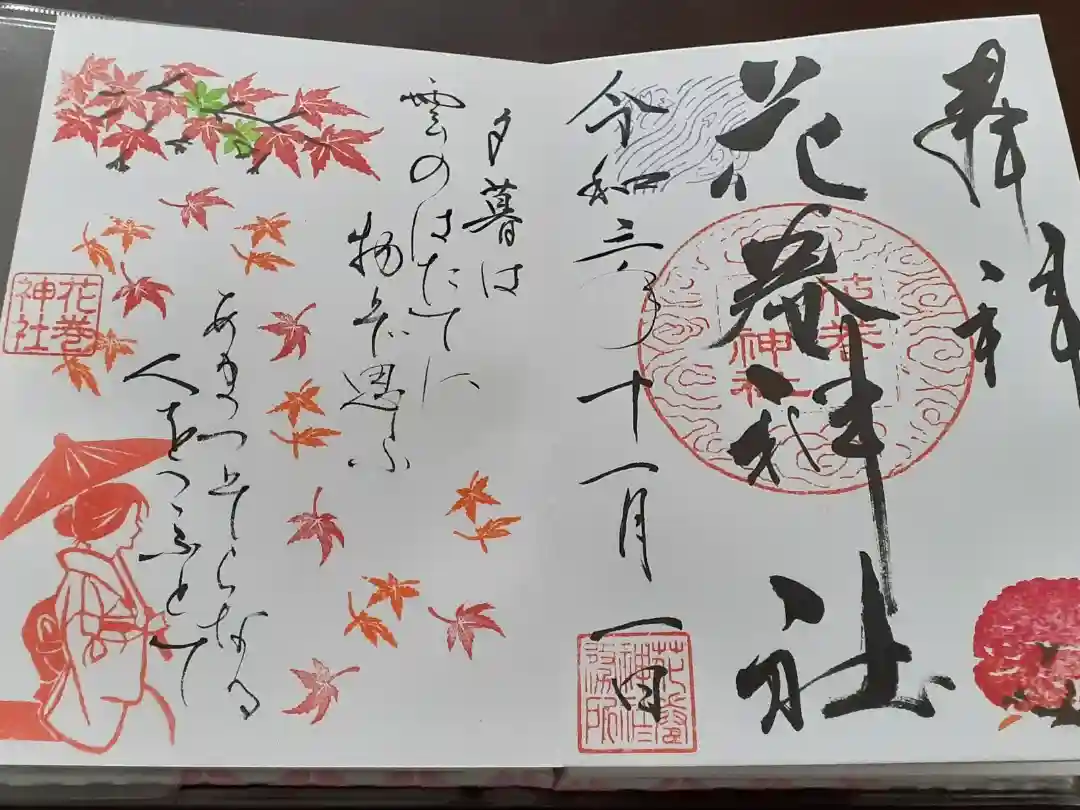 奉拝
花巻神社
花巻
神社
令和三年十一月一日
花巻
神社
務所
夕暮は
雲のはたてに
物ぞ思ふ
あまつそらなる
人をこふとて
花巻
神社